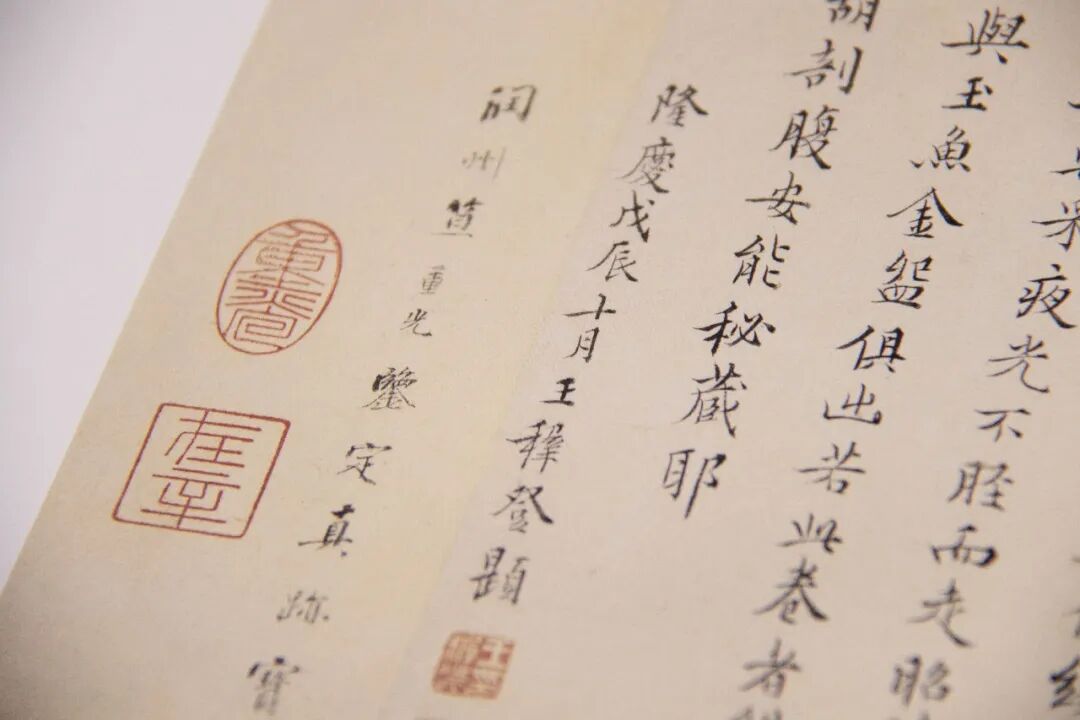 采夜光不脛而走昭
與玉魚金盌俱出若此卷者
胡剖腹安能秘蔵耶
隆慶戊辰十月王穉登題
潤州笪重光鑒定真跡寶